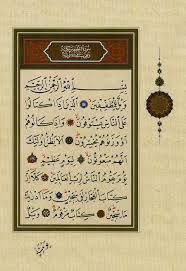 بِسْمِ اللّٰهِ الرَّحْمٰنِ الرَّحِيمِ
وَيْلٌ لِلْمُطَفِّفِينَ الَّذِينَ اِذَا اكْتَالُوا
عَلَى النَّاسِ يَسْتَوْفُونَ وَاِذَا كَالُوهُمْ
اَوْ وَزَنُوهُمْ يُخْسِرُونَ اَلَا يَظُنُّ اُولٰئِكَ
اَنَّهُمْ مَبْعُوثُونَ لِيَوْمٍ عَظِيمٍ
يَوْمَ يَقُومُ النَّاسُ لِرَبِّ الْعَالَمِينَ كَلَّا اِنَّ
كِتَابَ الْفُجَّارِ لَفِي سِجِّينٍ وَمَا اَدْرٰيكَ
مَا سِجِّينٌ كِتَابٌ مَرْقُومٌ وَيْلٌ